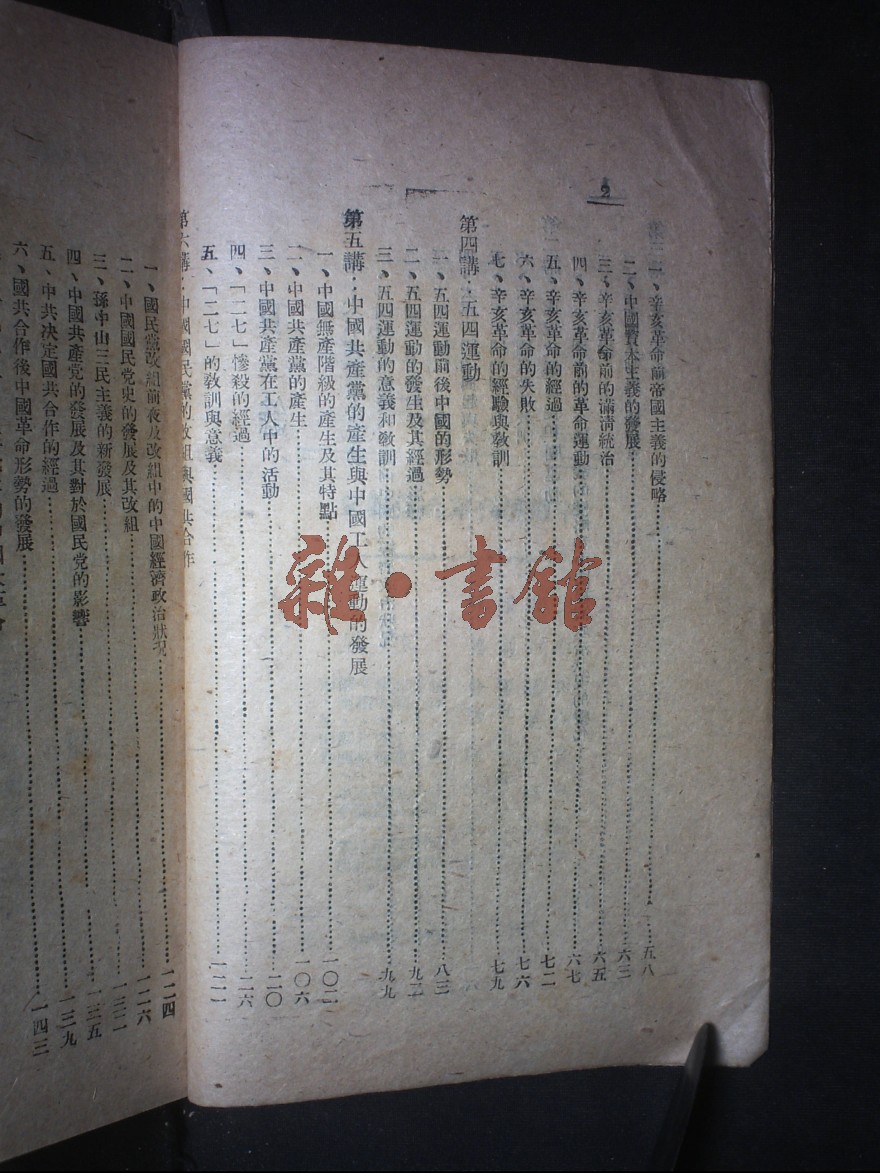 2
一、辛亥革命前帝國主義的侵略……五八
二、中國資本主義的發展……六三
三、辛亥革命前的滿清統治……六五
四、辛亥革命前的革命運動……六七
五、辛亥革命的經過……七二
六、辛亥革命的失敗……七六
七、辛亥革命的經驗與教訓……七九
第四講：五四運動
一、五四運動前後中國的形勢……八三
二、五四運動的發生及其經過……九二
三、五四運動的意義和教訓……九九
第五講：中國共產黨的產生與中國工人運動的發展
一、中國無產階級的產生及其特點……一〇二
二、中國共產黨的產生……一〇六
三、中國共產黨在工人中的活動……一一〇
四、「二七」慘殺的經過……一一六
五、「二七」的教訓與意義……一二一
第六講：中國國民黨的改組與國共合作
一、國民黨改組前夜及改組中的中國經濟政治狀况……一二四
二、中國國民党史的發展及其改組……一二六
三、孫中山三民主義的新發展……一三二
四、中國共產党的發展及其對於國民党的影響……一三五
五、中共决定國共合作的經過……一三九
六、國共合作後中國革命形勢的發展……一四三
雜·書館